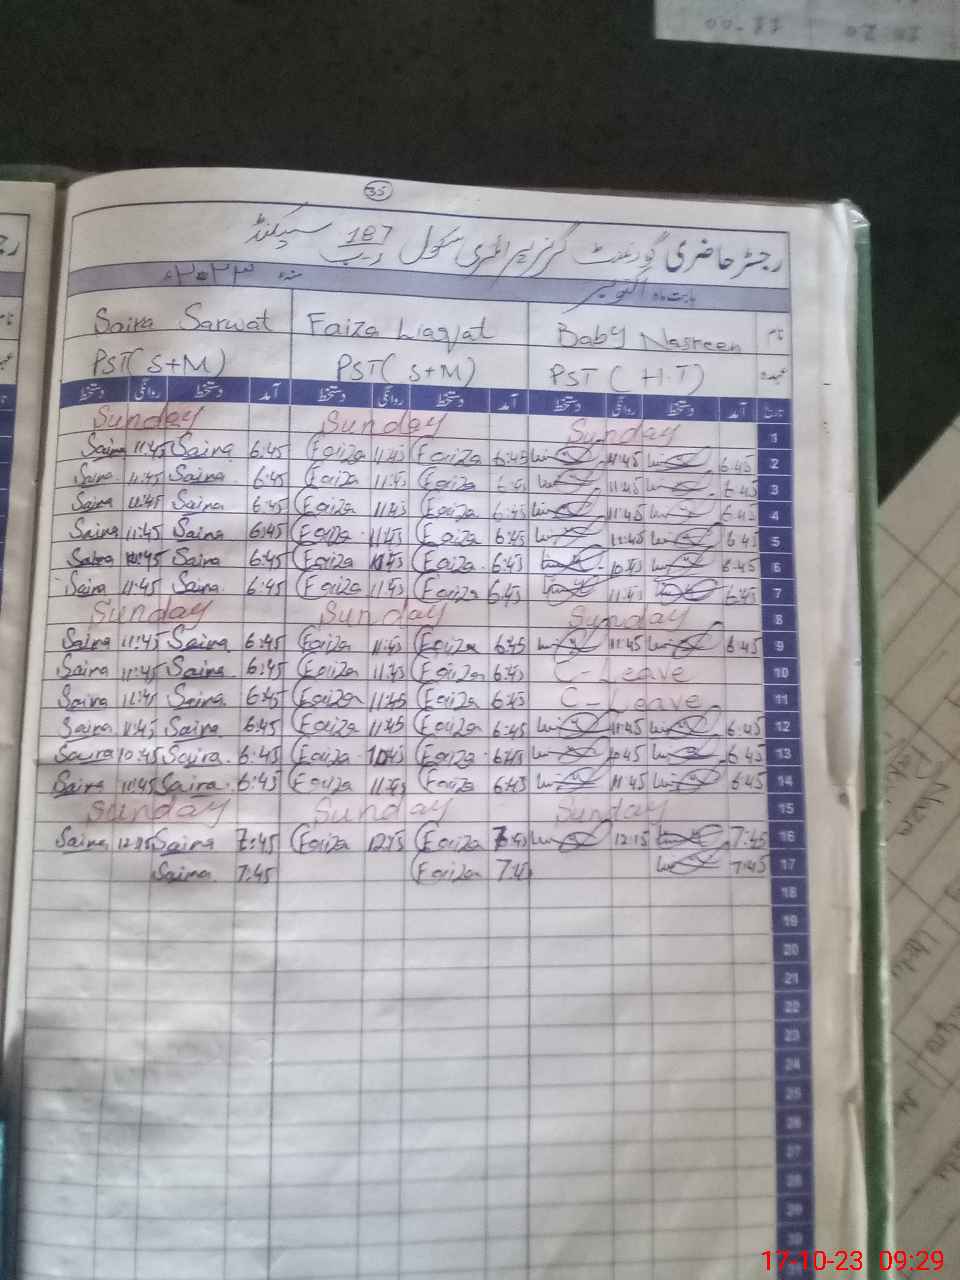 35
رجسٹر حاضری گورنمنٹ گرلز پرائمری سکول 187 ر ب سیکنڈ
بابت ماہ اکتوبر سنہ ۲۰۲۳ء
Saira Sarwat Faiza Liaqat Baby Nasreen نام
PST (S+M) PST (S+M) PST (H.T) عہدہ
دستخط روانگی دستخط آمد دستخط روانگی دستخط آمد دستخط روانگی دستخط آمد تاریخ
Sunday Sunday Sunday 1
Saira 11:45 Saira 6:45 Faiza 11:45 Faiza 6:45 11:45 6:45 2
Saira 11:45 Saira 6:45 Faiza 11:45 Faiza 6:45 11:45 6:45 3
Saira 11:45 Saira 6:45 Faiza 11:45 Faiza 6:45 11:45 6:45 4
Saira 11:45 Saira 6:45 Faiza 11:45 Faiza 6:45 11:45 6:45 5
Saira 10:45 Saira 6:45 Faiza 10:45 Faiza 6:45 10:45 6:45 6
Saira 11:45 Saira 6:45 Faiza 11:45 Faiza 6:45 11:45 6:45 7
Sunday Sunday Sunday 8
Saira 11:45 Saira 6:45 Faiza 11:45 Faiza 6:45 11:45 6:45 9
Saira 11:45 Saira 6:45 Faiza 11:45 Faiza 6:45 C-Leave 10
Saira 11:45 Saira 6:45 Faiza 11:45 Faiza 6:45 C-Leave 11
Saira 11:45 Saira 6:45 Faiza 11:45 Faiza 6:45 11:45 6:45 12
Saira 10:45 Saira 6:45 Faiza 10:45 Faiza 6:45 10:45 6:45 13
Saira 11:45 Saira 6:45 Faiza 11:45 Faiza 6:45 11:45 6:45 14
Sunday Sunday Sunday 15
Saira 12:15 Saira 7:45 Faiza 12:15 Faiza 7:45 12:15 7:45 16
Saira 7:45 Faiza 7:45 7:45 17
18
19
20
21
22
23
24
25
26
27
28
29
30
31
17-10-23 09:29